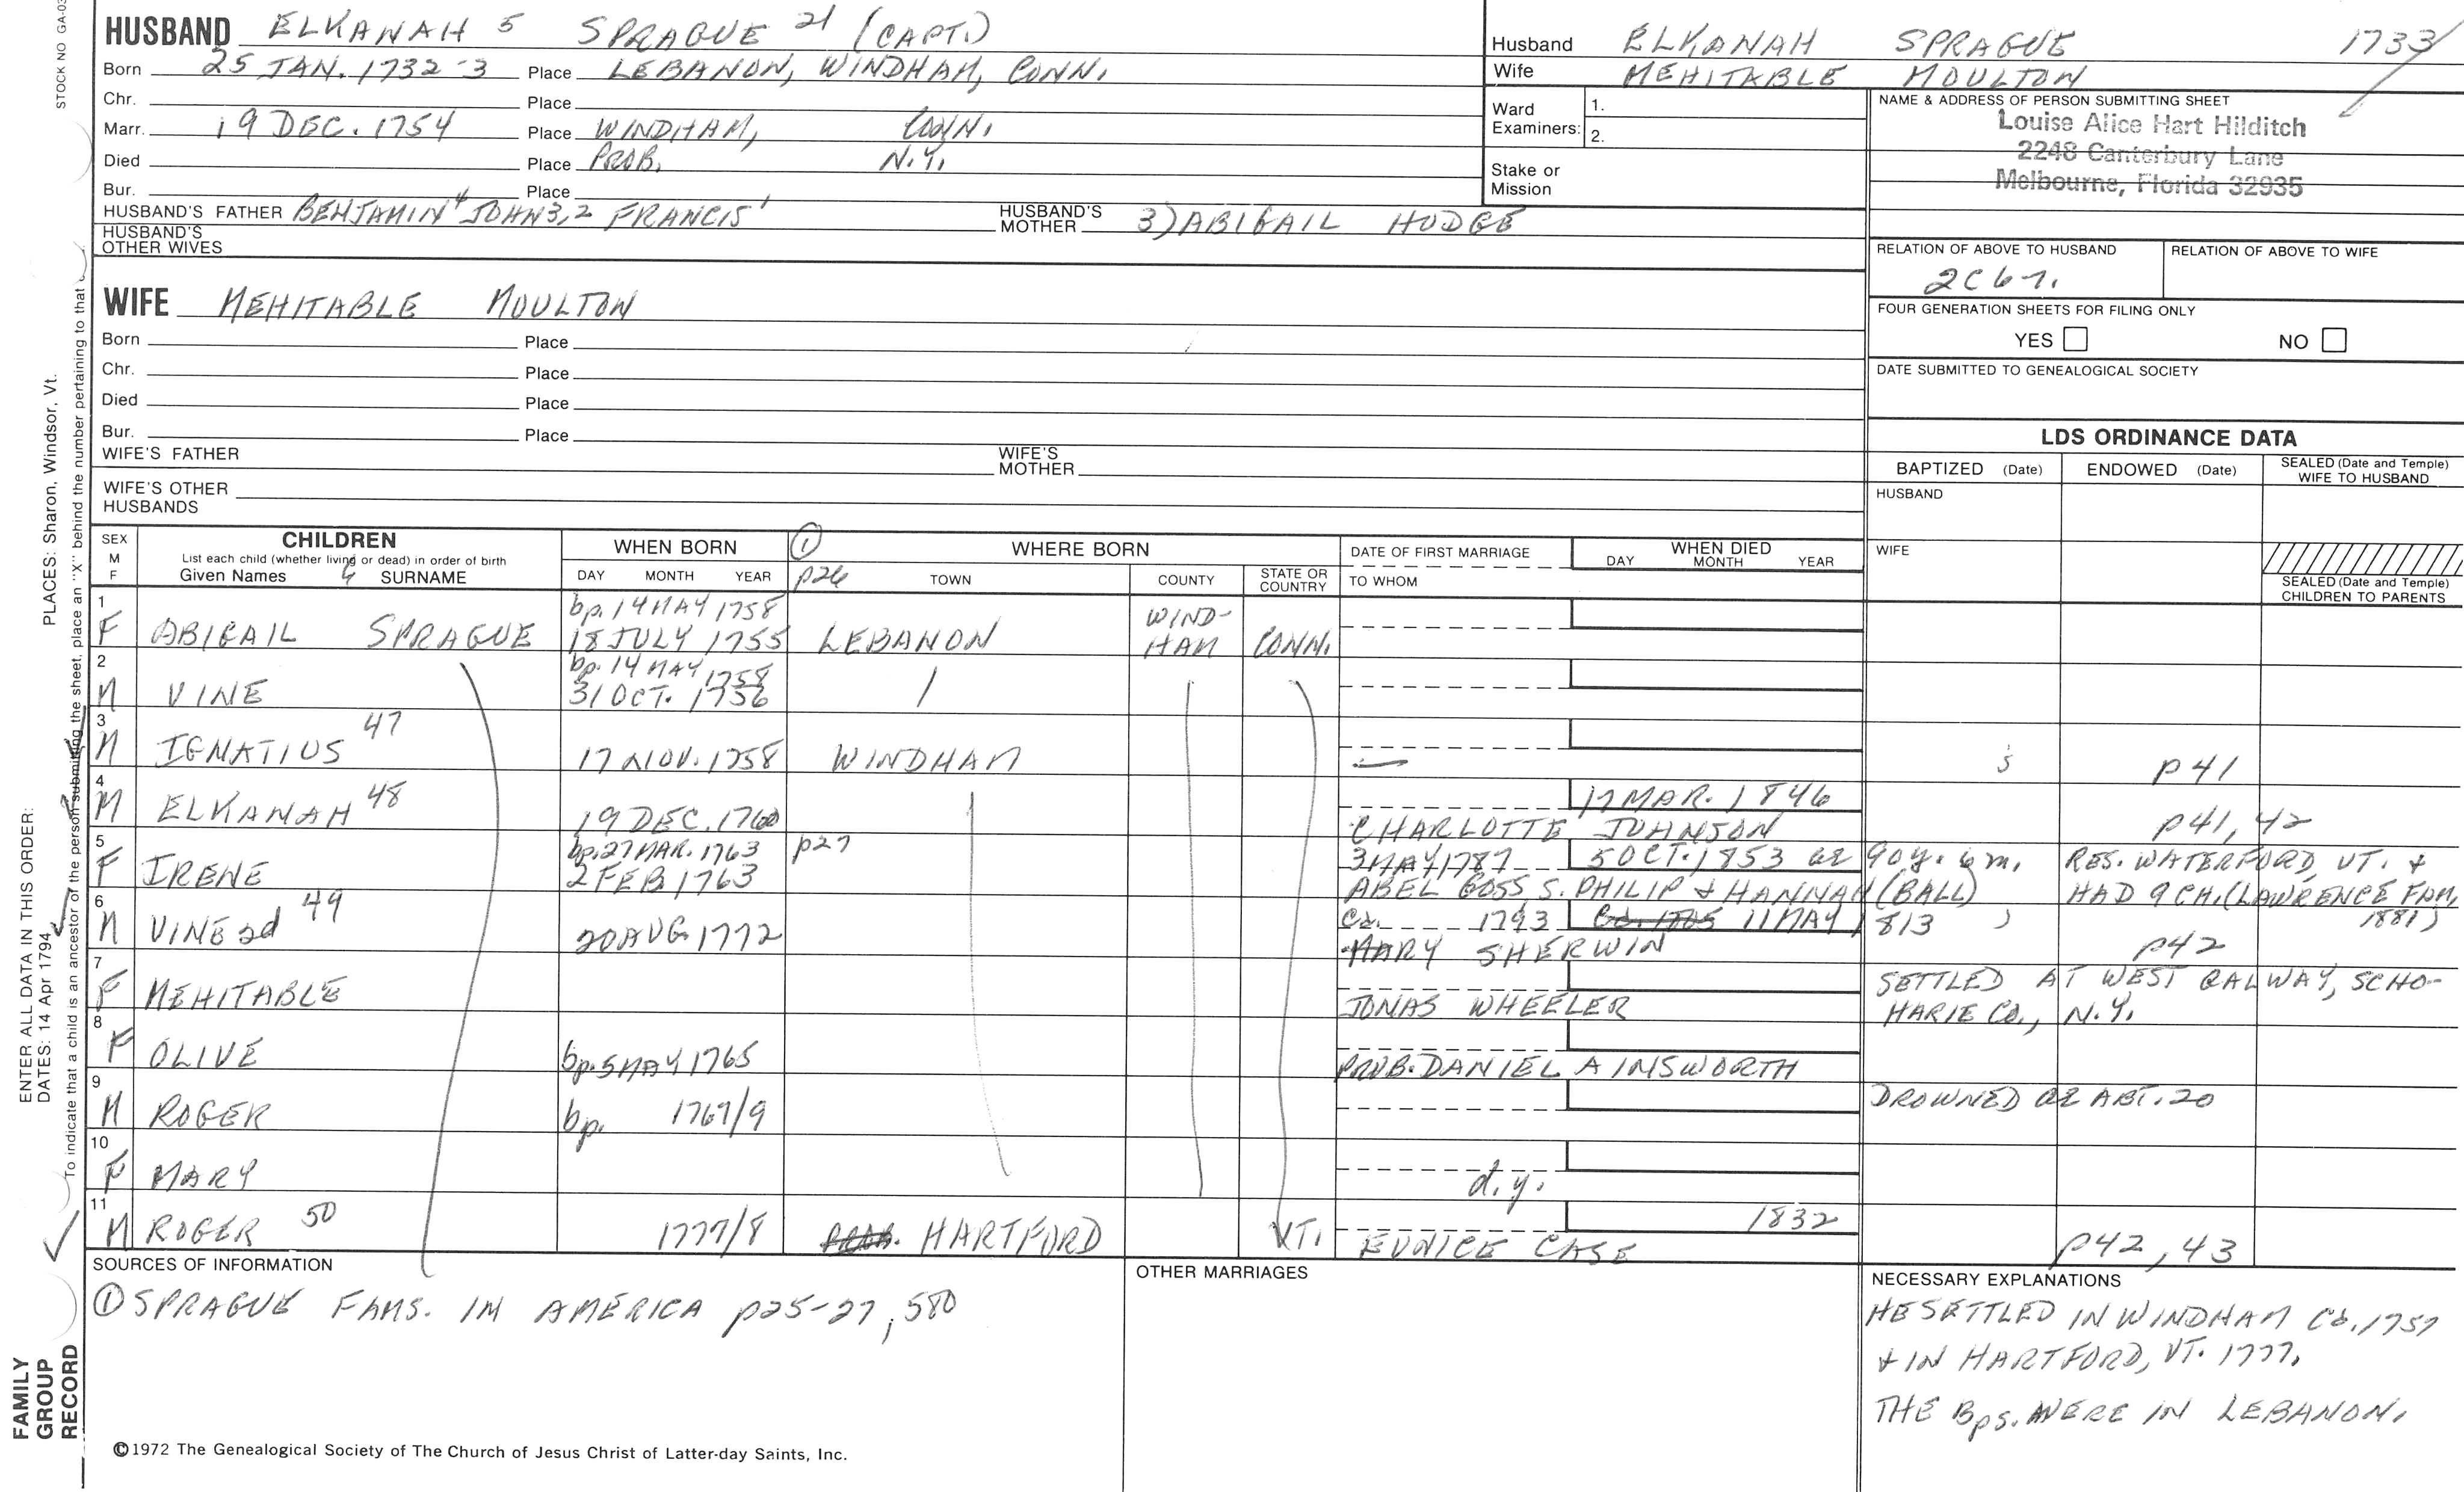 STOCK NO GA-03
HUSBAND ELKANAH 5 SPRAGUE 21 (CAPT.)
Born 25 JAN. 1732-3 Place LEBANON, WINDHAM, CONN.
Chr. Place
Marr. 19 DEC. 1754 Place WINDHAM, CONN.
Died Place PROB. N.Y.
Bur. Place
HUSBAND'S FATHER BENJAMIN 4 JOHN 3,2 FRANCIS 1 HUSBAND'S MOTHER 3) ABIGAIL HODGE
HUSBAND'S OTHER WIVES
Husband ELKANAH SPRAGUE 1733
Wife MEHITABLE MOULTON
Ward Examiners: 1.
2.
Stake or Mission
NAME & ADDRESS OF PERSON SUBMITTING SHEET
Louise Alice Hart Hilditch
2248 Canterbury Lane
Melbourne, Florida 32935
RELATION OF ABOVE TO HUSBAND RELATION OF ABOVE TO WIFE
2C 6r.
FOUR GENERATION SHEETS FOR FILING ONLY
YES NO
DATE SUBMITTED TO GENEALOGICAL SOCIETY
WIFE MEHITABLE MOULTON
Born Place
Chr. Place
Died Place
Bur. Place
WIFE'S FATHER WIFE'S MOTHER
WIFE'S OTHER HUSBANDS
LDS ORDINANCE DATA
BAPTIZED (Date) ENDOWED (Date) SEALED (Date and Temple) WIFE TO HUSBAND
HUSBAND
WIFE
SEALED (Date and Temple) CHILDREN TO PARENTS
SEX M F
CHILDREN
List each child (whether living or dead) in order of birth
Given Names 6 SURNAME
WHEN BORN
DAY MONTH YEAR
① p26
WHERE BORN
TOWN COUNTY STATE OR COUNTRY
DATE OF FIRST MARRIAGE
TO WHOM
WHEN DIED
DAY MONTH YEAR
1 bp. 14 MAY 1758 WIND-
F ABIGAIL SPRAGUE 18 JULY 1755 LEBANON HAM CONN.
2 bp. 14 MAY 1758
M VINE 31 OCT. 1756
3 47
M IGNATIUS 17 NOV. 1758 WINDHAM p41
4 48 17 MAR. 1846
M ELKANAH 19 DEC. 1760 CHARLOTTE JOHNSON p41, 42
5 bp. 27 MAR. 1763 p27 3 MAY 1787 5 OCT. 1853 ae 90y. 6m. RES. WATERFORD, VT. &
F IRENE 2 FEB 1763 ABEL GOSS S. PHILIP & HANNAH (BALL) HAD 9 CH. (LAWRENCE FAM. 1881)
6 49 Ca. 1793 Ca. 1785 11 MAY 1813
M VINE 2d 20 AUG. 1772 MARY SHERWIN p42
7 SETTLED AT WEST GALWAY, SCHO-
F MEHITABLE JONAS WHEELER HARIE CO., N.Y.
8
F OLIVE bp. 5 MAY 1765 PROB. DANIEL AINSWORTH
9 DROWNED ae ABT. 20
M ROGER bp. 1767/9
10
F MARY d.y.
11 50 1832
M ROGER 1777/8 PROB. HARTFORD VT. EUNICE CASE p42, 43
SOURCES OF INFORMATION
① SPRAGUE FAMS. IN AMERICA p25-27, 580
OTHER MARRIAGES
NECESSARY EXPLANATIONS
HE SETTLED IN WINDHAM CO. 1757
& IN HARTFORD, VT. 1777.
THE Bps. WERE IN LEBANON.
©1972 The Genealogical Society of The Church of Jesus Christ of Latter-day Saints, Inc.
FAMILY GROUP RECORD
ENTER ALL DATA IN THIS ORDER:
DATES: 14 Apr 1794
PLACES: Sharon, Windsor, Vt.
To indicate that a child is an ancestor of the person submitting the sheet, place an "X" behind the number pertaining to that